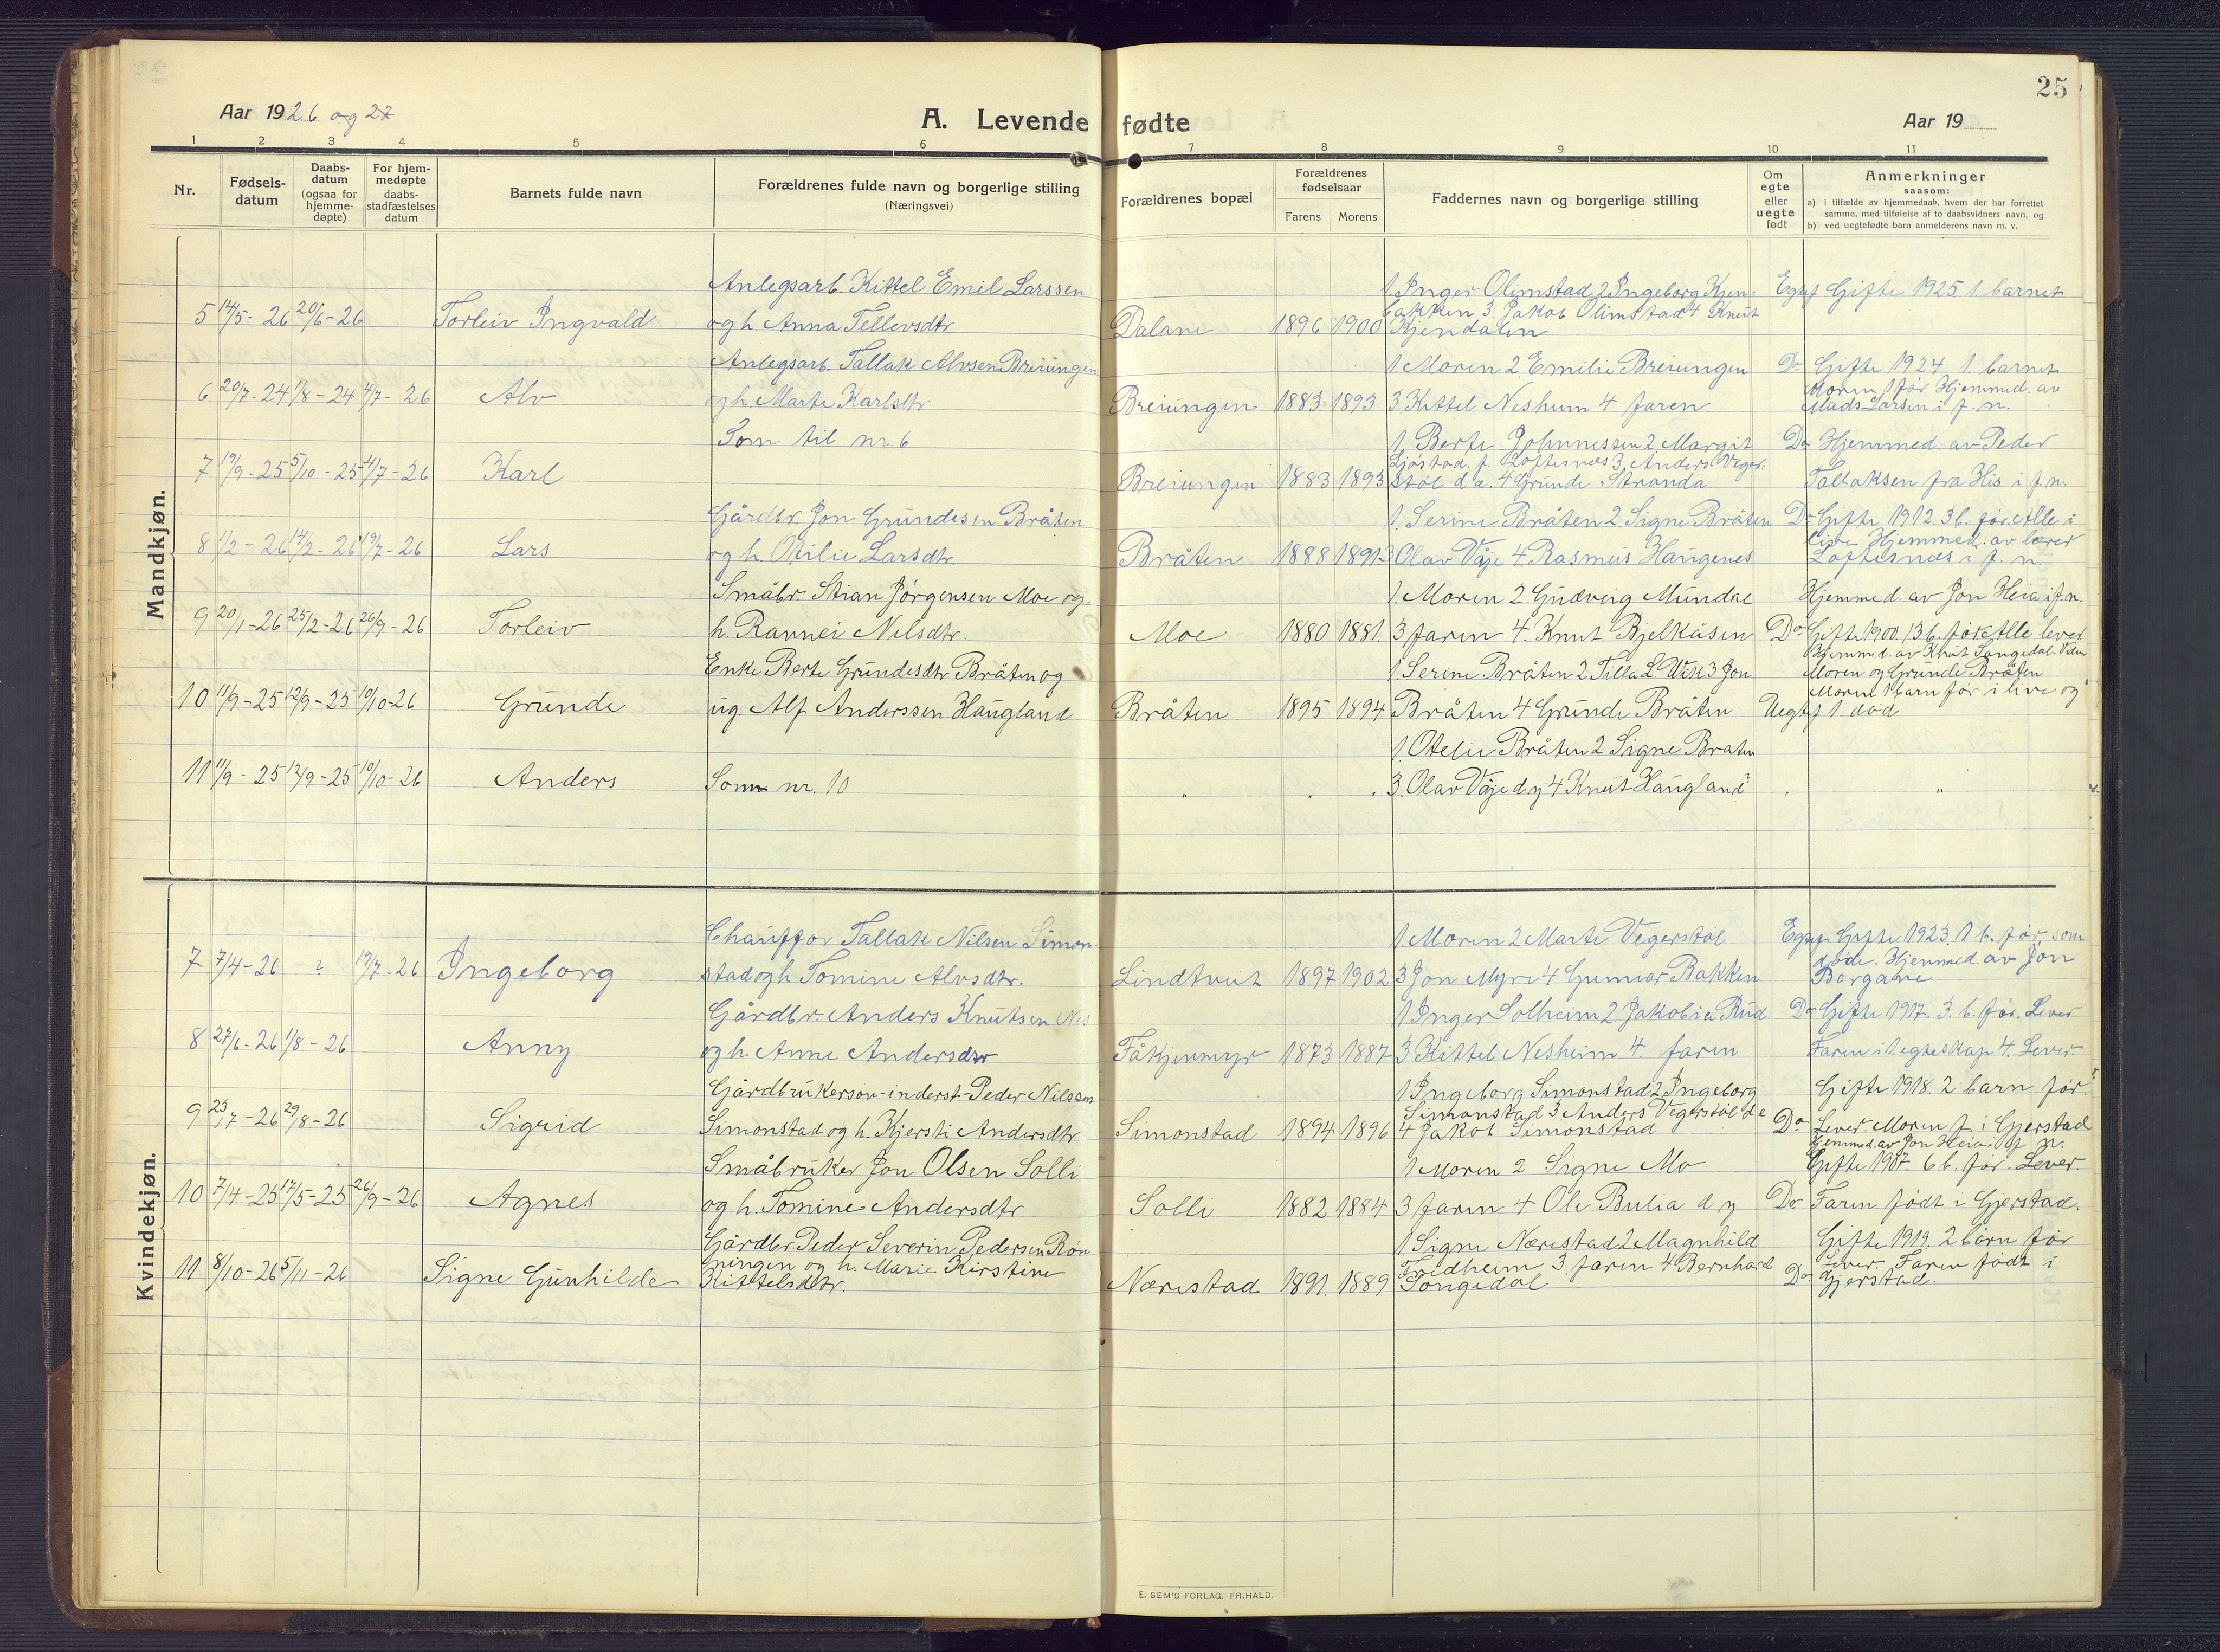 25
Aar 1926 og 27
A. Levende fødte
Aar 19
1 2 3 4 5 6 7 8 9 10 11
Nr.
Fødsels-
datum
Daabs-
datum
(ogsaa for
hjemme-
døpte)
For hjem-
medøpte
daabs-
stadfæstelses
datum
Barnets fulde navn
Forældrenes fulde navn og borgerlige stilling
(Næringsvei)
Forældrenes bopæl
Forældrenes
fødselsaar
Farens Morens
Faddernes navn og borgerlige stilling
Om
egte
eller
uegte
født
Anmerkninger
saasom:
a) i tilfælde av hjemmedaab, hvem der har forrettet
samme, med tilføielse af to daabsvidners navn, og
b) ved uegtefødte barn anmelderens navn m. v.
Mandkjøn.
5 14/5-26 20/6-26 Torleiv Ingvald
Anlegsarb. Kittel Emil Larssen
og h. Anna Tellevsdtr
Dalane 1896 1900
1 Inger Olimstad 2 Ingeborg Kjen-
bakken 3. Jakob Olimstad 4 Knut
Kjendalen
Egtef Gifte 1925 1. barnet
6 20/7-24 1/8-24 4/7-26 Alv
Anlegsarb. Tallak Alvsen Breiungen
og h. Marte Karlsdtr
Breiungen 1883 1893
1 Moren 2 Emilie Breiungen
3 Kittel Neshum 4 faren
Do Gifte 1924 1 barnet
Moren 1 før Hjemmed. av
Mads Larsen i f. n.
7 19/9-25 5/10-25 4/7-26 Karl
Som til nr. 6
Breiungen 1883 1893
1. Berte Johnnessen 2 Margit
Ljøstad. f. Loftesnæs 3. Anders Veger-
støl d. æ. 4 Grunde Stranda
Do Hjemmed av Peder
Tallaksen fra His i f. n.
8 1/2-26 14/2-26 19/7-26 Lars
Gårdbr. Jon Grundesen Bråten
og h. Otilie Larsdtr.
Bråten 1888 1891
1. Serine Bråten 2. Signe Bråten
3 Olav Våje 4. Rasmus Haugenes
Do Gifte 1912. 3 b. før. Alle i
live. Hjemmed. av lærer
Loftesnæs i f. n.
9 20/1-26 25/2-26 26/9-26 Torleiv
Småbr. Stian Jørgensen Moe og
h. Rannei Nilsdtr.
Moe 1880 1881
1. Moren 2. Gudveig Mundal
3 faren 4. Knut Bjelkåsen
Hjemmed. av Jon Heia i f. n.
Do Gifte 1900. 13 b. før. Alle lever
10 11/9-25 12/9-25 10/10-26 Grunde
Enke Berte Grundesdtr Bråten og
ug. Alf Anderssen Haugland
Bråten 1895 1894
1 Serine Bråten 2 Tilla L. Vik 3 Jon
Bråten 4 Grunde Bråten
Hjemmed. av Knut Songedal. Vidn
Moren og Grunde Bråten
Moren 1 barn før i live og
Uegtef 1 død
11 11/9-25 12/9-25 10/10-26 Anders
Som nr. 10
1. Otelie Bråten 2 Signe Braten
3. Olav Våje d y 4 Knut Haugland
Kvindekjøn.
7 7/4-26 ? 19/7-26 Ingeborg
Chauffor Tallak Nilsen Simon-
stad og h Tomine Alvsdtr.
Lindtveit 1897 1902
1. Moren 2 Marte Vegerstøl
3 Jon Myre 4 Gunnar Bakken
Egtef. Gifte 1923. 1 b. før, som
døde. Hjemmed. av Jon
Borgane
8 27/6-26 1/8-26 Anny
Gårdbr. Anders Knutsen Nes
og h. Anne Andersdtr
Tåkjennmyr 1873 1887
1 Inger Solheim 2 Jakobia Rud
3 Kittel Nesheim 4. faren
Do Gifte 1917. 3. b. før. Lever
Faren i 1. egteskap 4. Lever.
9 23/7-26 29/8-26 Sigrid
Gårdbrukersøn-inderst-Peder Nilssen
Simonstad og h. Kjersti Andersdtr
Simonstad 1894 1896
1 Ingeborg Simonstad 2 Ingeborg
Simonstad 3 Anders Vegerstøl d e
4 Jakob Simonstad
Gifte 1918. 2 barn før.
Do Lever. Moren f. i Gjerstad
10 7/4-25 17/5-25 26/9-26 Agnes
Småbruker Jon Olsen Solli
og h. Tomine Andersdtr
Solli 1882 1884
1 Moren 2 Signe Mo
3 faren 4 Ole Bulia d y
Hjemmed. av Jon Heia i f. n.
Gifte 1907. 6 b. før. Lever.
Do Faren født i Gjerstad.
11 8/10-26 5/11-26 Signe Gunhilde
Gårdbr. Peder Severin Pedersen Røn
ningen og h. Marie Kirstine
Kittelsdtr.
Nærestad 1891 1889
1. Signe Nærestad 2 Magnhild
Fredheim 3 faren 4 Bernhard
Songedal
Gifte 1919. 2 barn før
Lever. Faren født i
Do Gjerstad.
E. SEM'S FORLAG, FR.HALD.